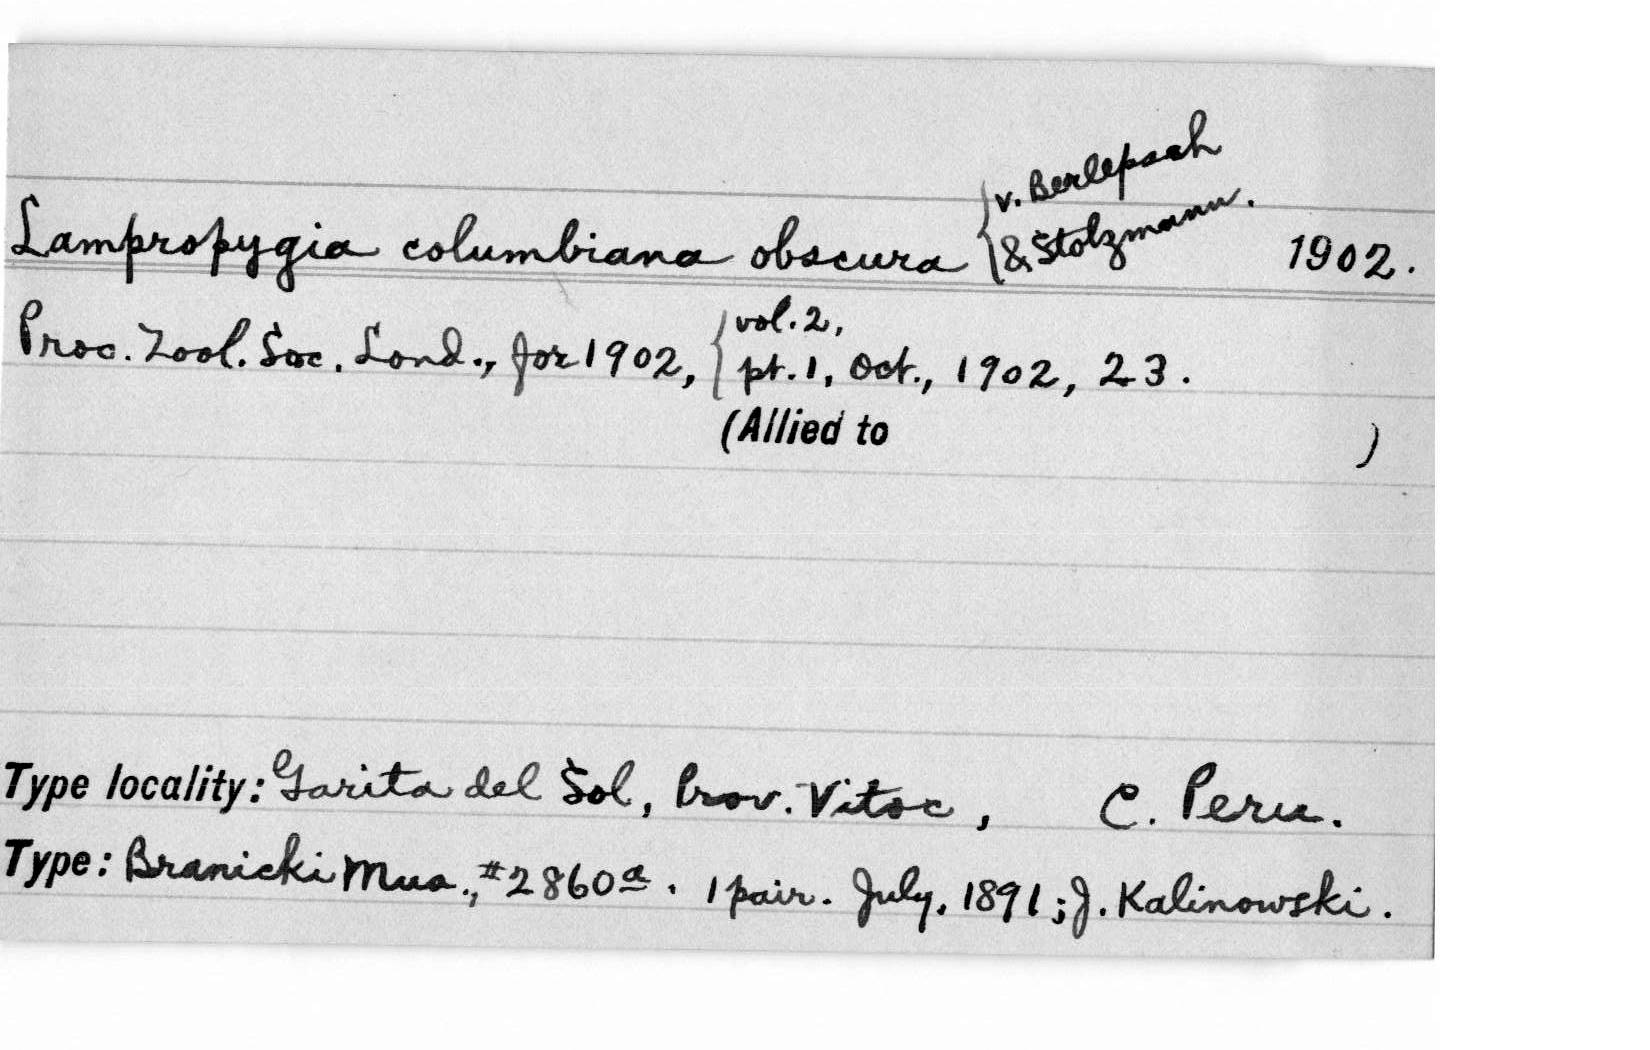 Lampropygia columbiana obscura { v. Berlepsch & Stolzmann. 1902.
Proc. Zool. Soc. Lond., for 1902, { vol. 2, pt. 1, Oct., 1902, 23.
(Allied to )
Type locality: Garita del Sol, Prov. Vitoc, C. Peru.
Type: Branicki Mus., #2860a. 1 pair. July, 1891; J. Kalinowski.